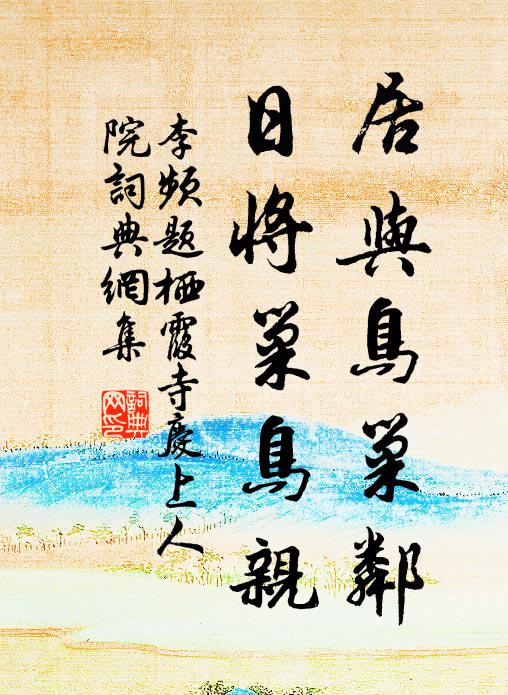 居與鳥巢鄰
日將巢鳥親
李頻題栖霞寺慶上人
院詞典網集
詞典
网印